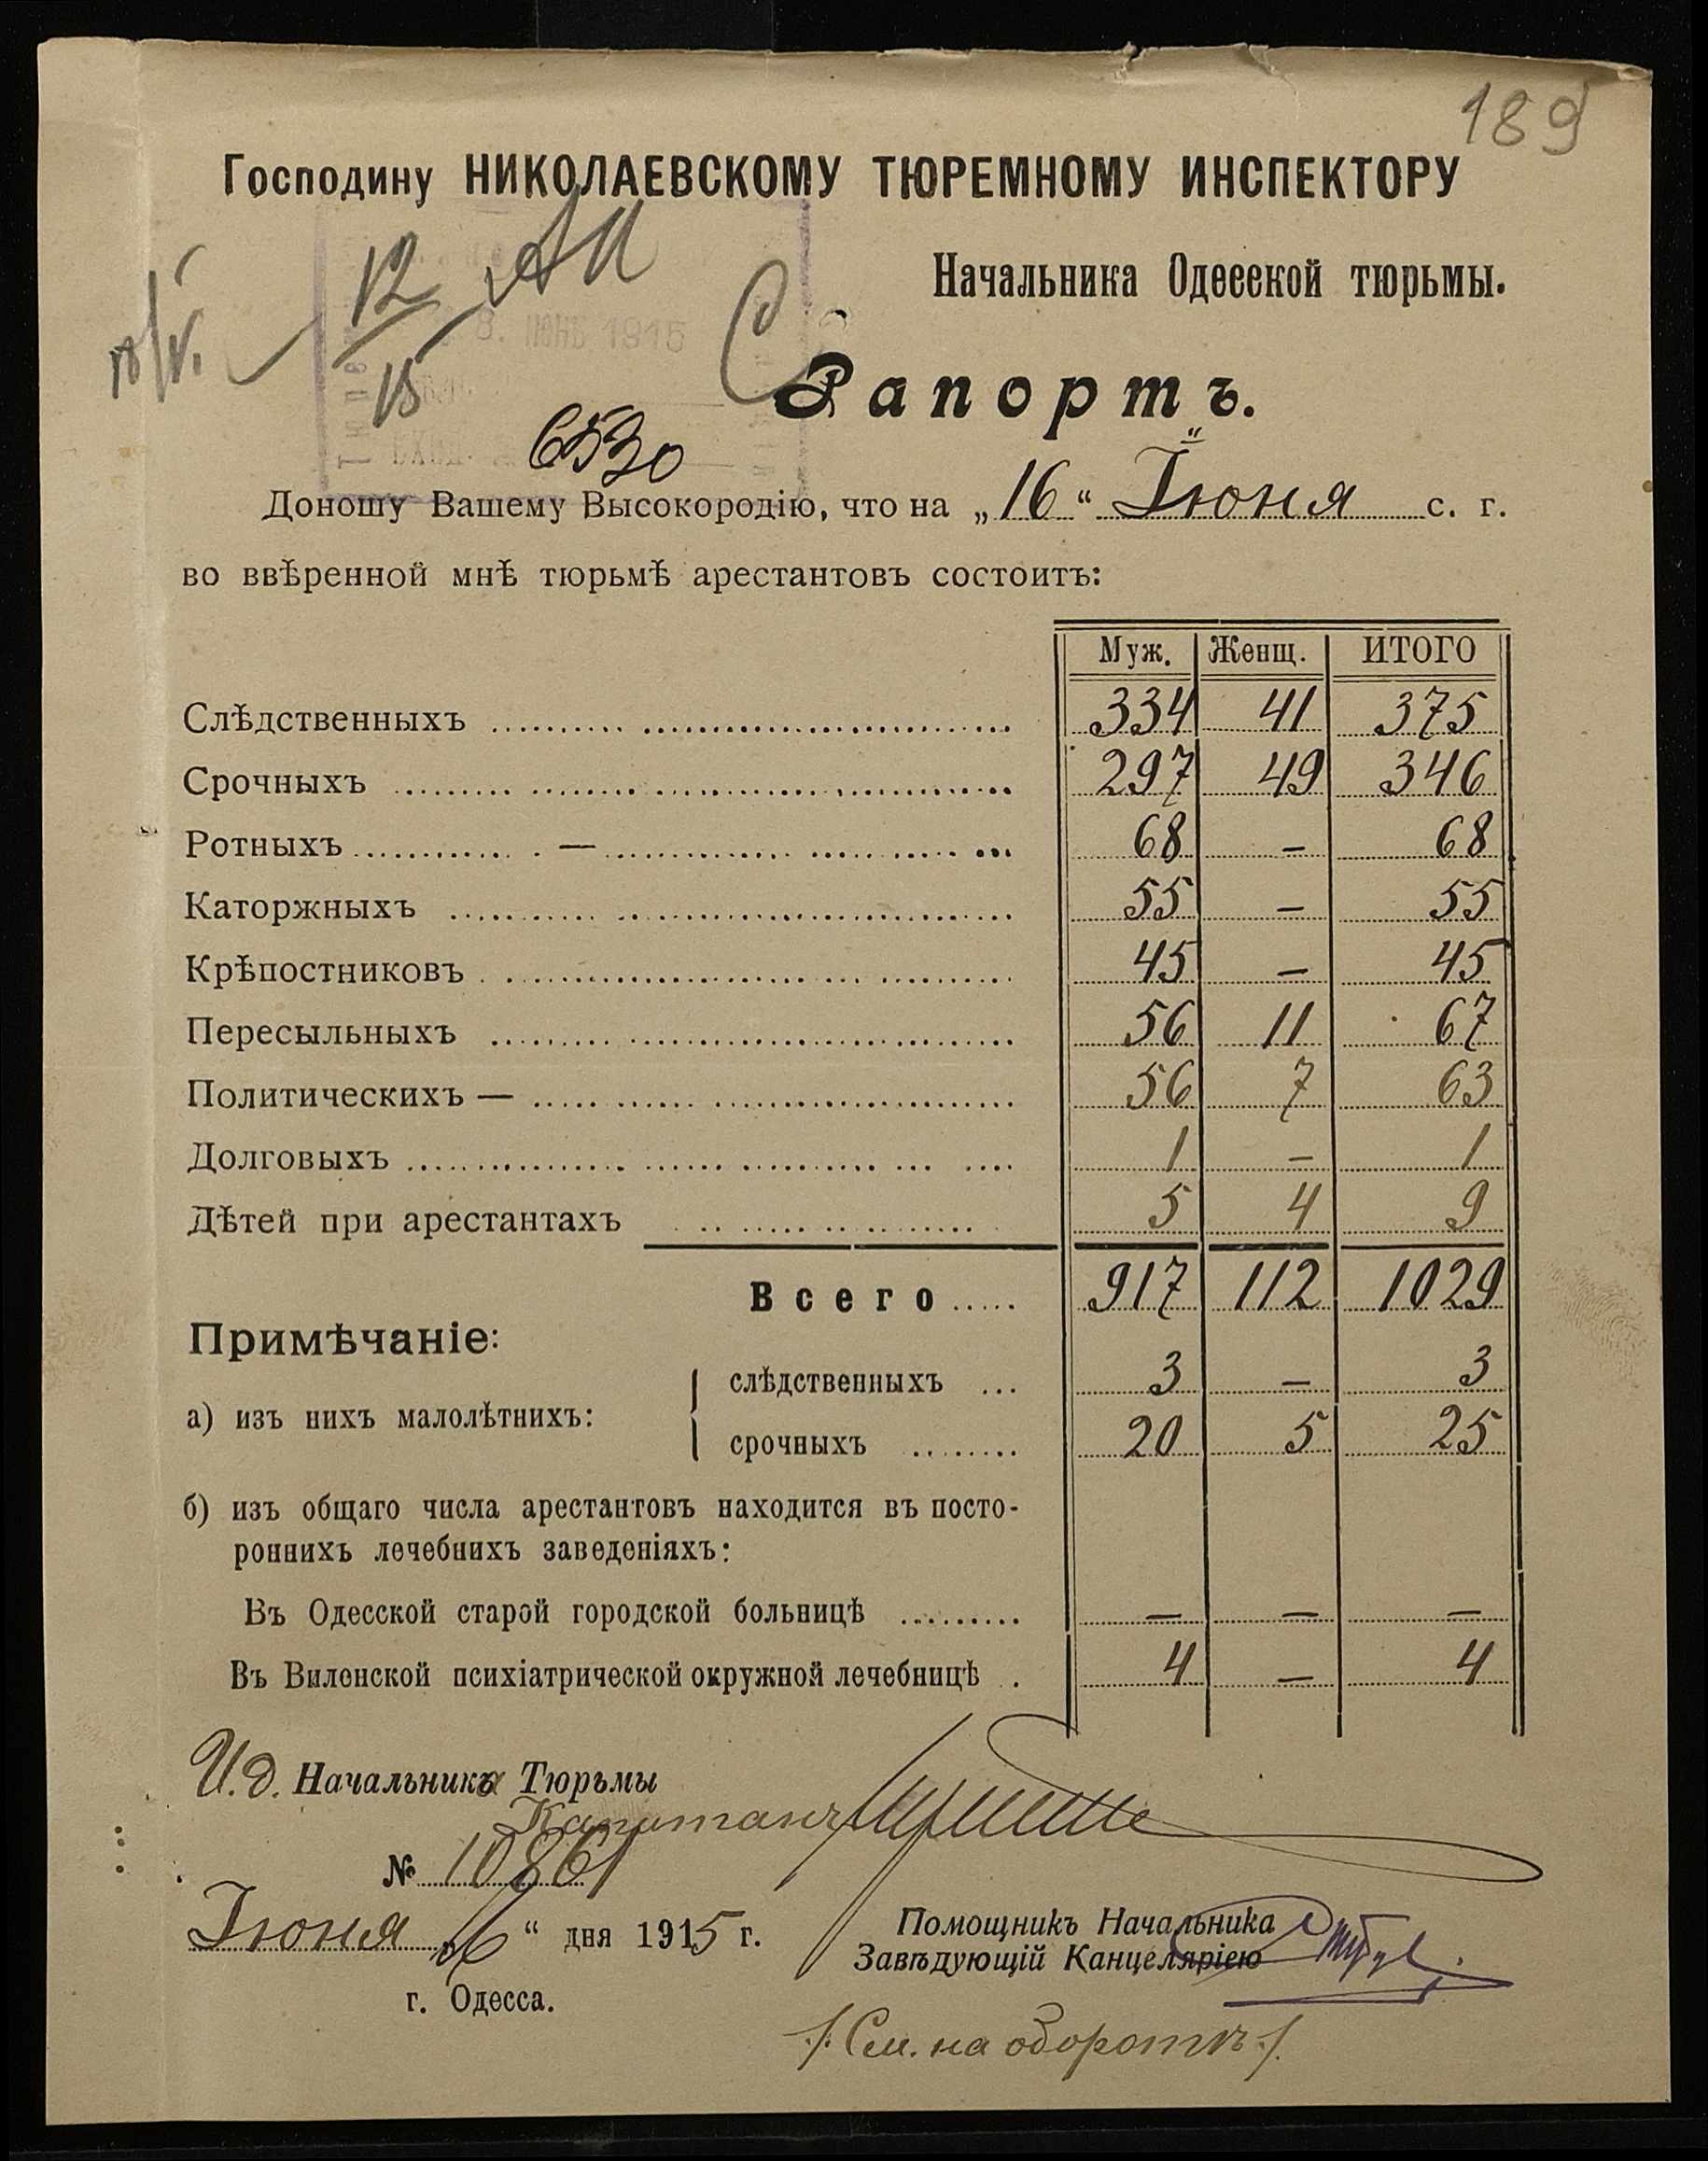 189
Господину НИКОЛАЕВСКОМУ ТЮРЕМНОМУ ИНСПЕКТОРУ
Начальника Одесской тюрьмы.
12
15
8. ИЮНЬ 1915
Рапортъ.
6530
Доношу Вашему Высокородію, что на „16“ Іюня с. г.
во ввѣренной мнѣ тюрьмѣ арестантовъ состоитъ:
Муж. Женщ. ИТОГО
Слѣдственныхъ 334 41 375
Срочныхъ 297 49 346
Ротныхъ — 68 – 68
Каторжныхъ 55 – 55
Крѣпостниковъ 45 – 45
Пересыльныхъ 56 11 67
Политическихъ — 56 7 63
Долговыхъ 1 – 1
Дѣтей при арестантахъ 5 4 9
Всего 917 112 1029
Примѣчаніе:
а) изъ нихъ малолѣтнихъ:
слѣдственныхъ 3 – 3
срочныхъ 20 5 25
б) изъ общаго числа арестантовъ находится въ посто-
роннихъ лечебнихъ заведеніяхъ:
Въ Одесской старой городской больницѣ – – –
Въ Виленской психіатрической окружной лечебницѣ 4 – 4
И.д. Начальника Тюрьмы
Капитанъ
№ 10861
Іюня 16“ дня 1915 г.
г. Одесса.
Помощникъ Начальника
Завѣдующій Канцеляріею
/См. на оборотѣ/